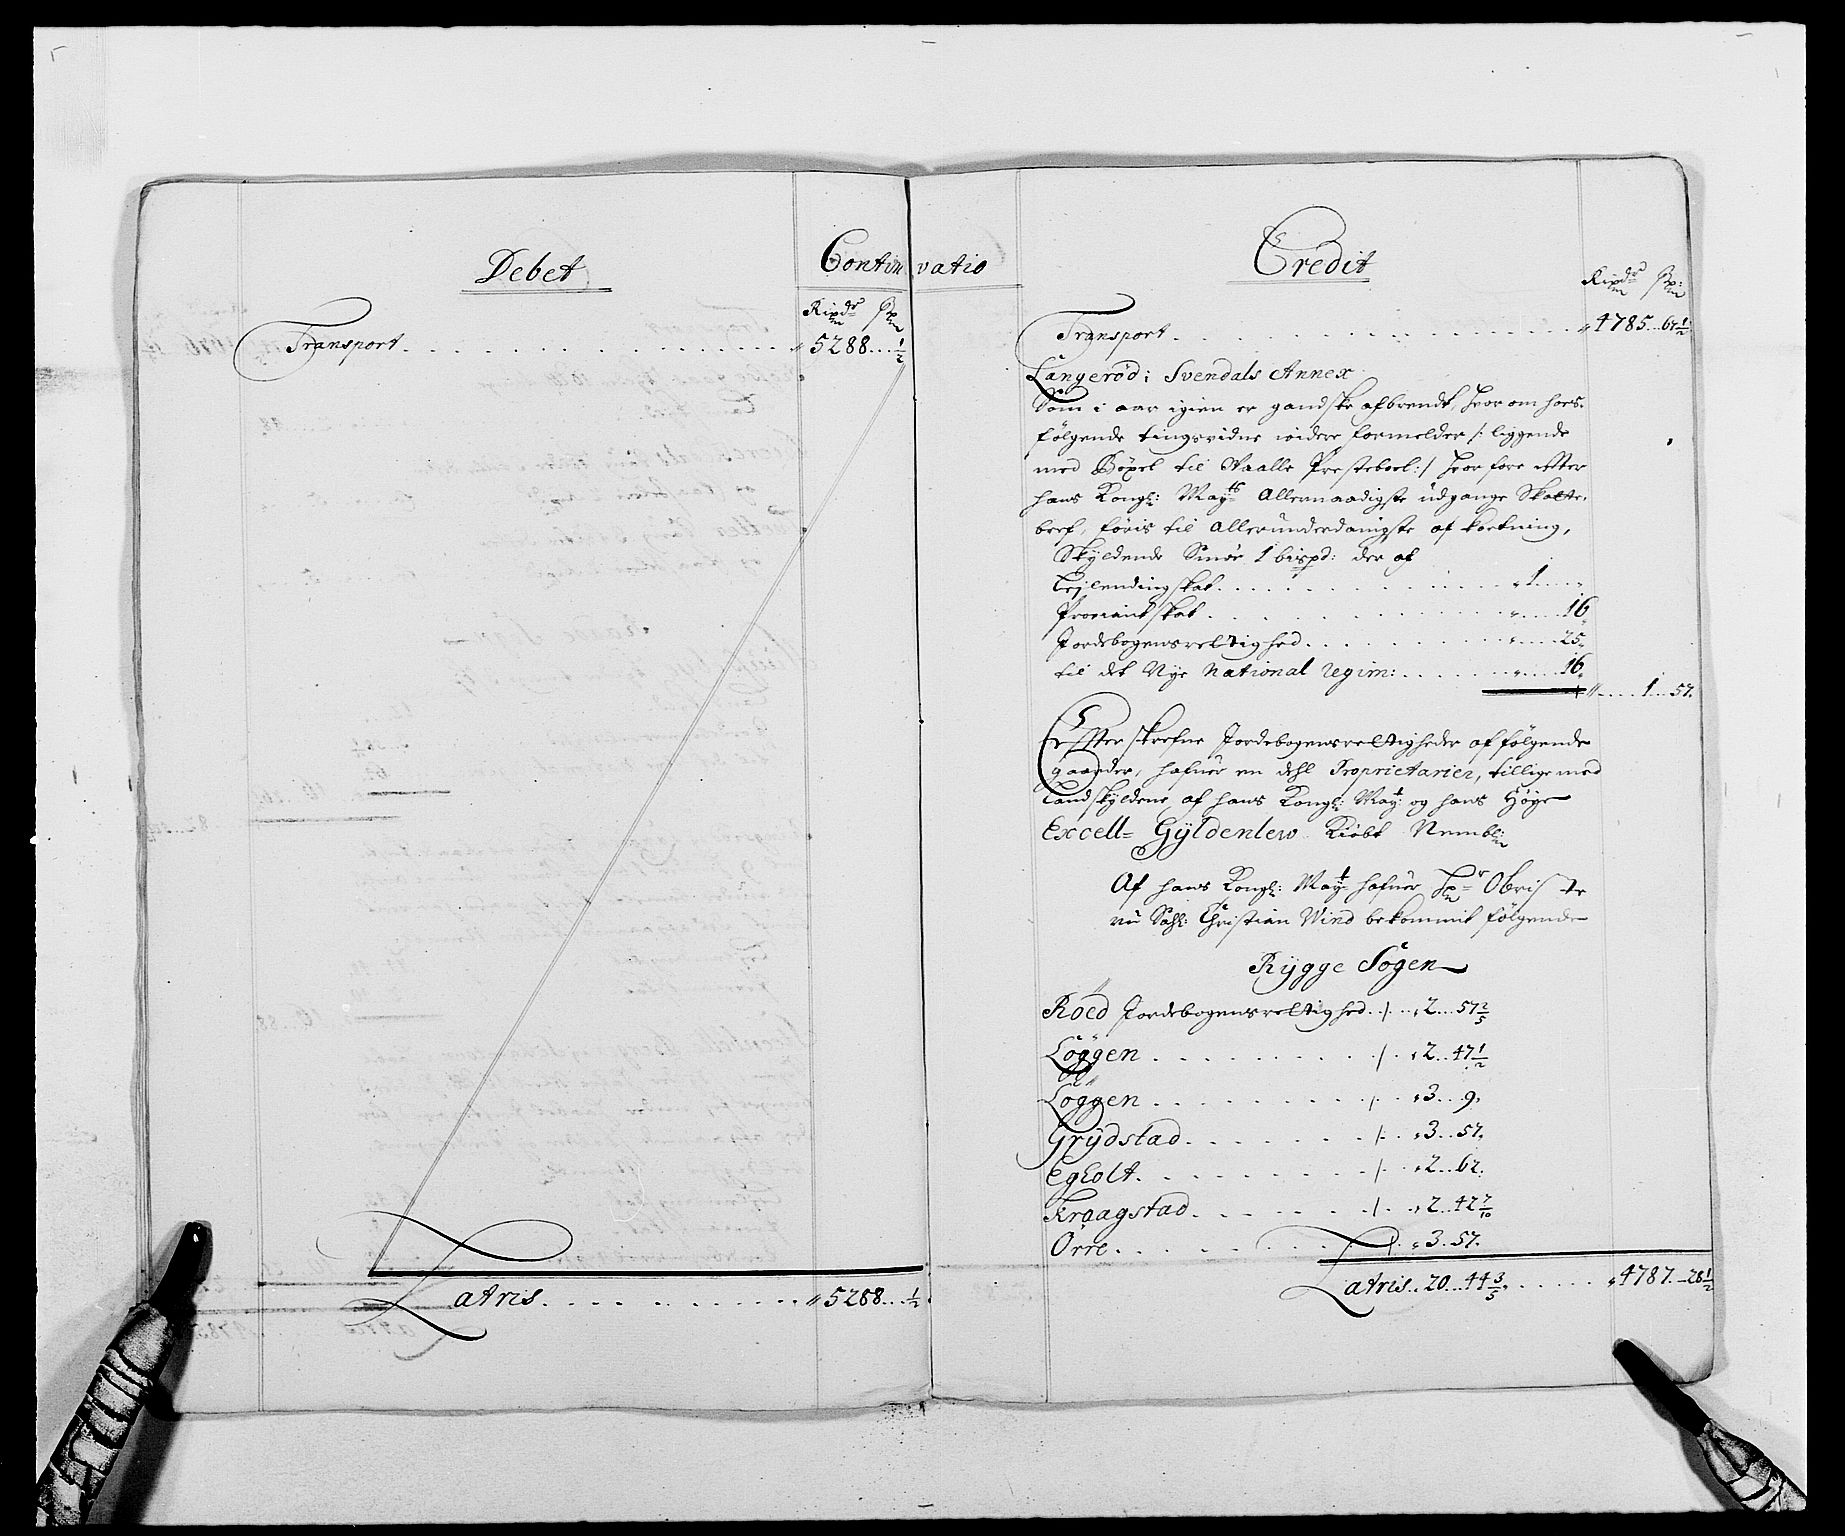 Debet
Continvatio
Ripdr
Transport 5288 ½
Latris 5288 ½
Credit
Ripdr
Transport 4785 67½
Langerød i Svendals Annex
Som i aar igien er gandske afbrendt, hvor om hos-
følgende tingsvidne widere formelder /: liggende
med Bøxel til Waalle Presteboel :/ hvor fore efter
hans Kongl: Mayts Allernaadigste udgangne Skatte-
bref, føris til Allerunderdanigste af kortning,
Skyldende Smør 1 bispd: der af
Lejlendingskat 1
Proviantskat 16
Jordebogensrettighed 25
til det Nye National regim: 16
1 57
Effter skrefne Jordebogensrettigheder af følgende
gaarder, hafuer en dehl Proprietarier, tillige med
Landskyldene af hans Kongl: Mayt og hans Høye
Excell= Gyldenlew Kiøbt Nembl:
Af hans Kongl: Mayt hafuer Hr Obriste
nu Sahl: Christian Wind bekommit følgende
Rygge Sogen
Röed Jordebogensrettighed 2 57 2/5
Löggen 2 47 ½
Löggen 3 9
Grydstad 3 57
Egholt 2 62
Kraagstad 2 42 7/10
Orre 3 57
Latris 20 44 3/5 4787 28½